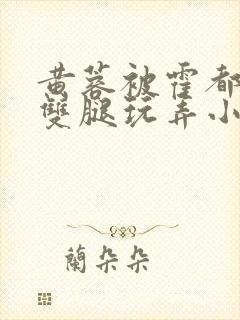 黄蓉被霍都
雙腿玩弄小
蘭朵朵